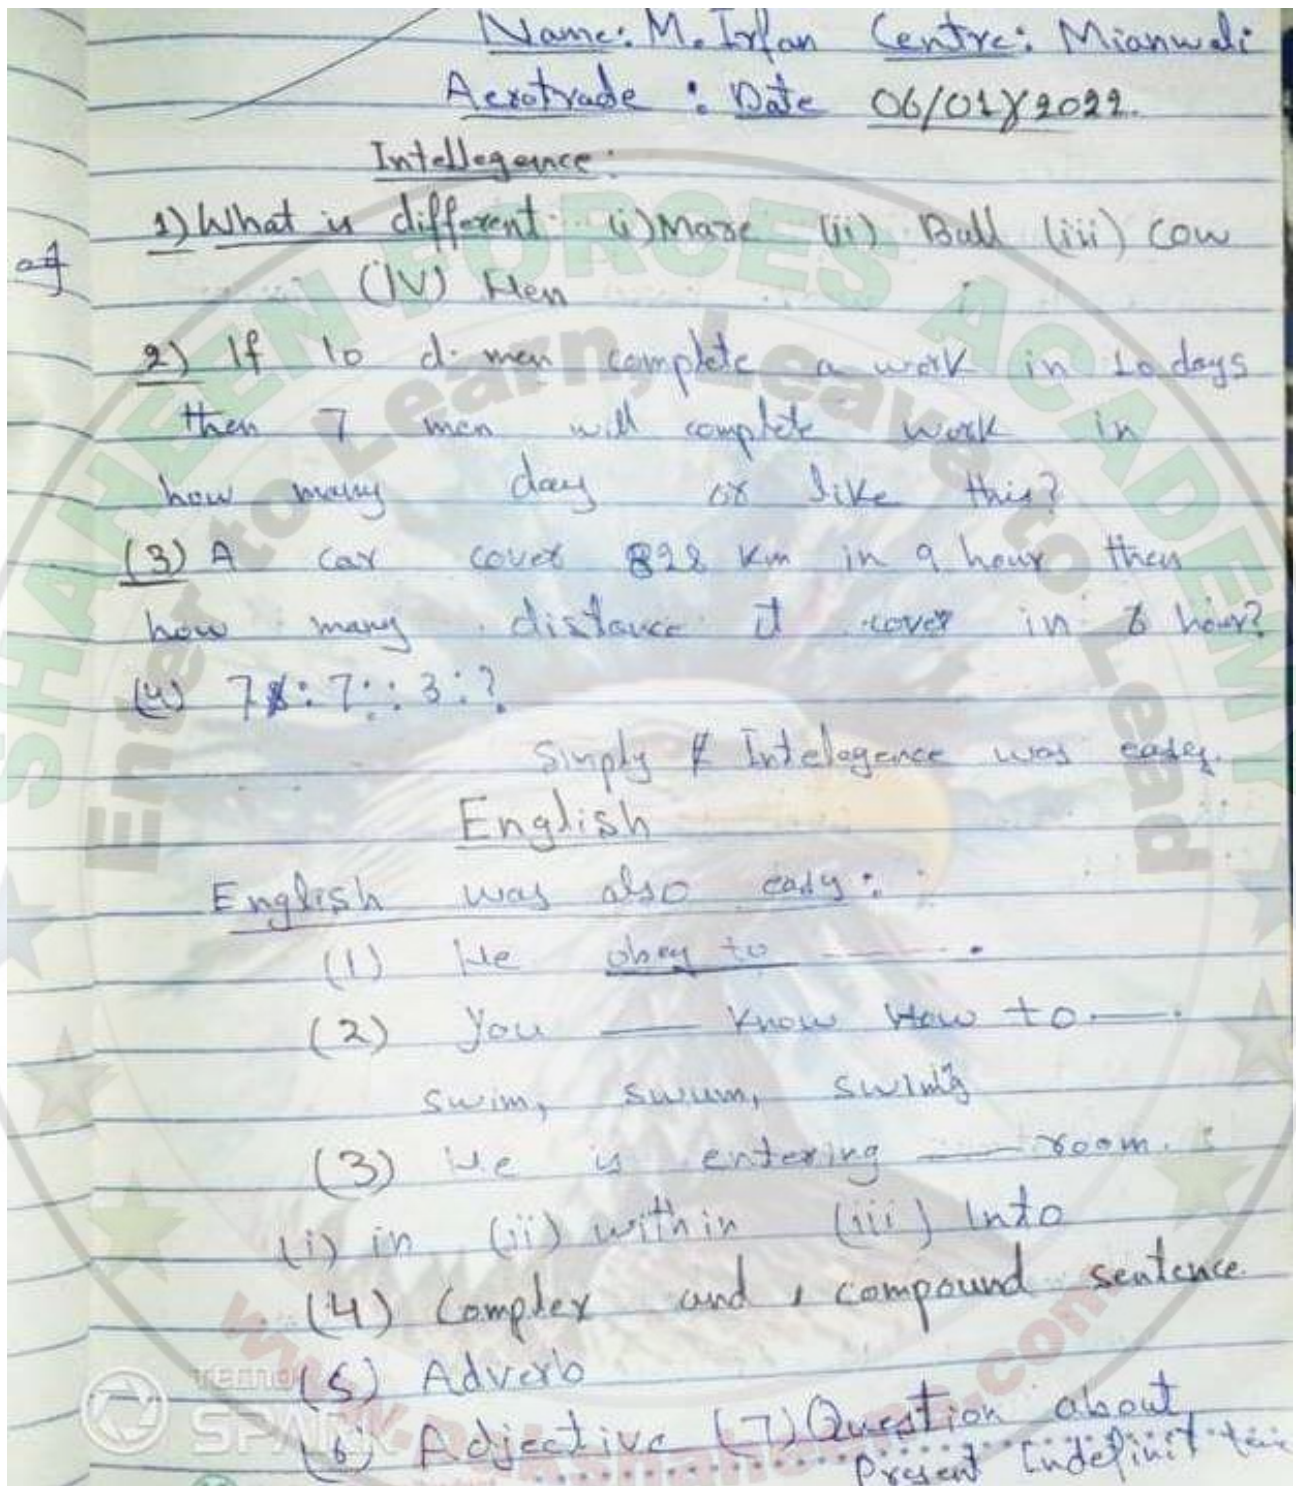 Name: M. Irfan Centre: Mianwali
Aerotrade : Date 06/01/2022.
Intellegence:
1) What is different (i) Mare (ii) Bull (iii) Cow
(iv) Hen
2) If 10 d. men complete a work in 10 days
then 7 men will complete work in
how many day or like this?
(3) A car cover 828 km in 9 hour then
how many distance it cover in 6 hour?
(4) 7 : 7 :: 3 : ?
Simply Intelegence was easy.
English
English was also easy:
(1) He obey to ——— .
(2) You —— know How to —— .
swim, swum, swimg
(3) He is entering —— room.
(i) in (ii) within (iii) Into
(4) Complex and , compound sentence.
(5) Adverb
(6) Adjective (7) Question about
Present Indefinit
SHAHEEN FORCES ACADEMY
Enter to Learn, Leave to Lead
TECNO
SPARK